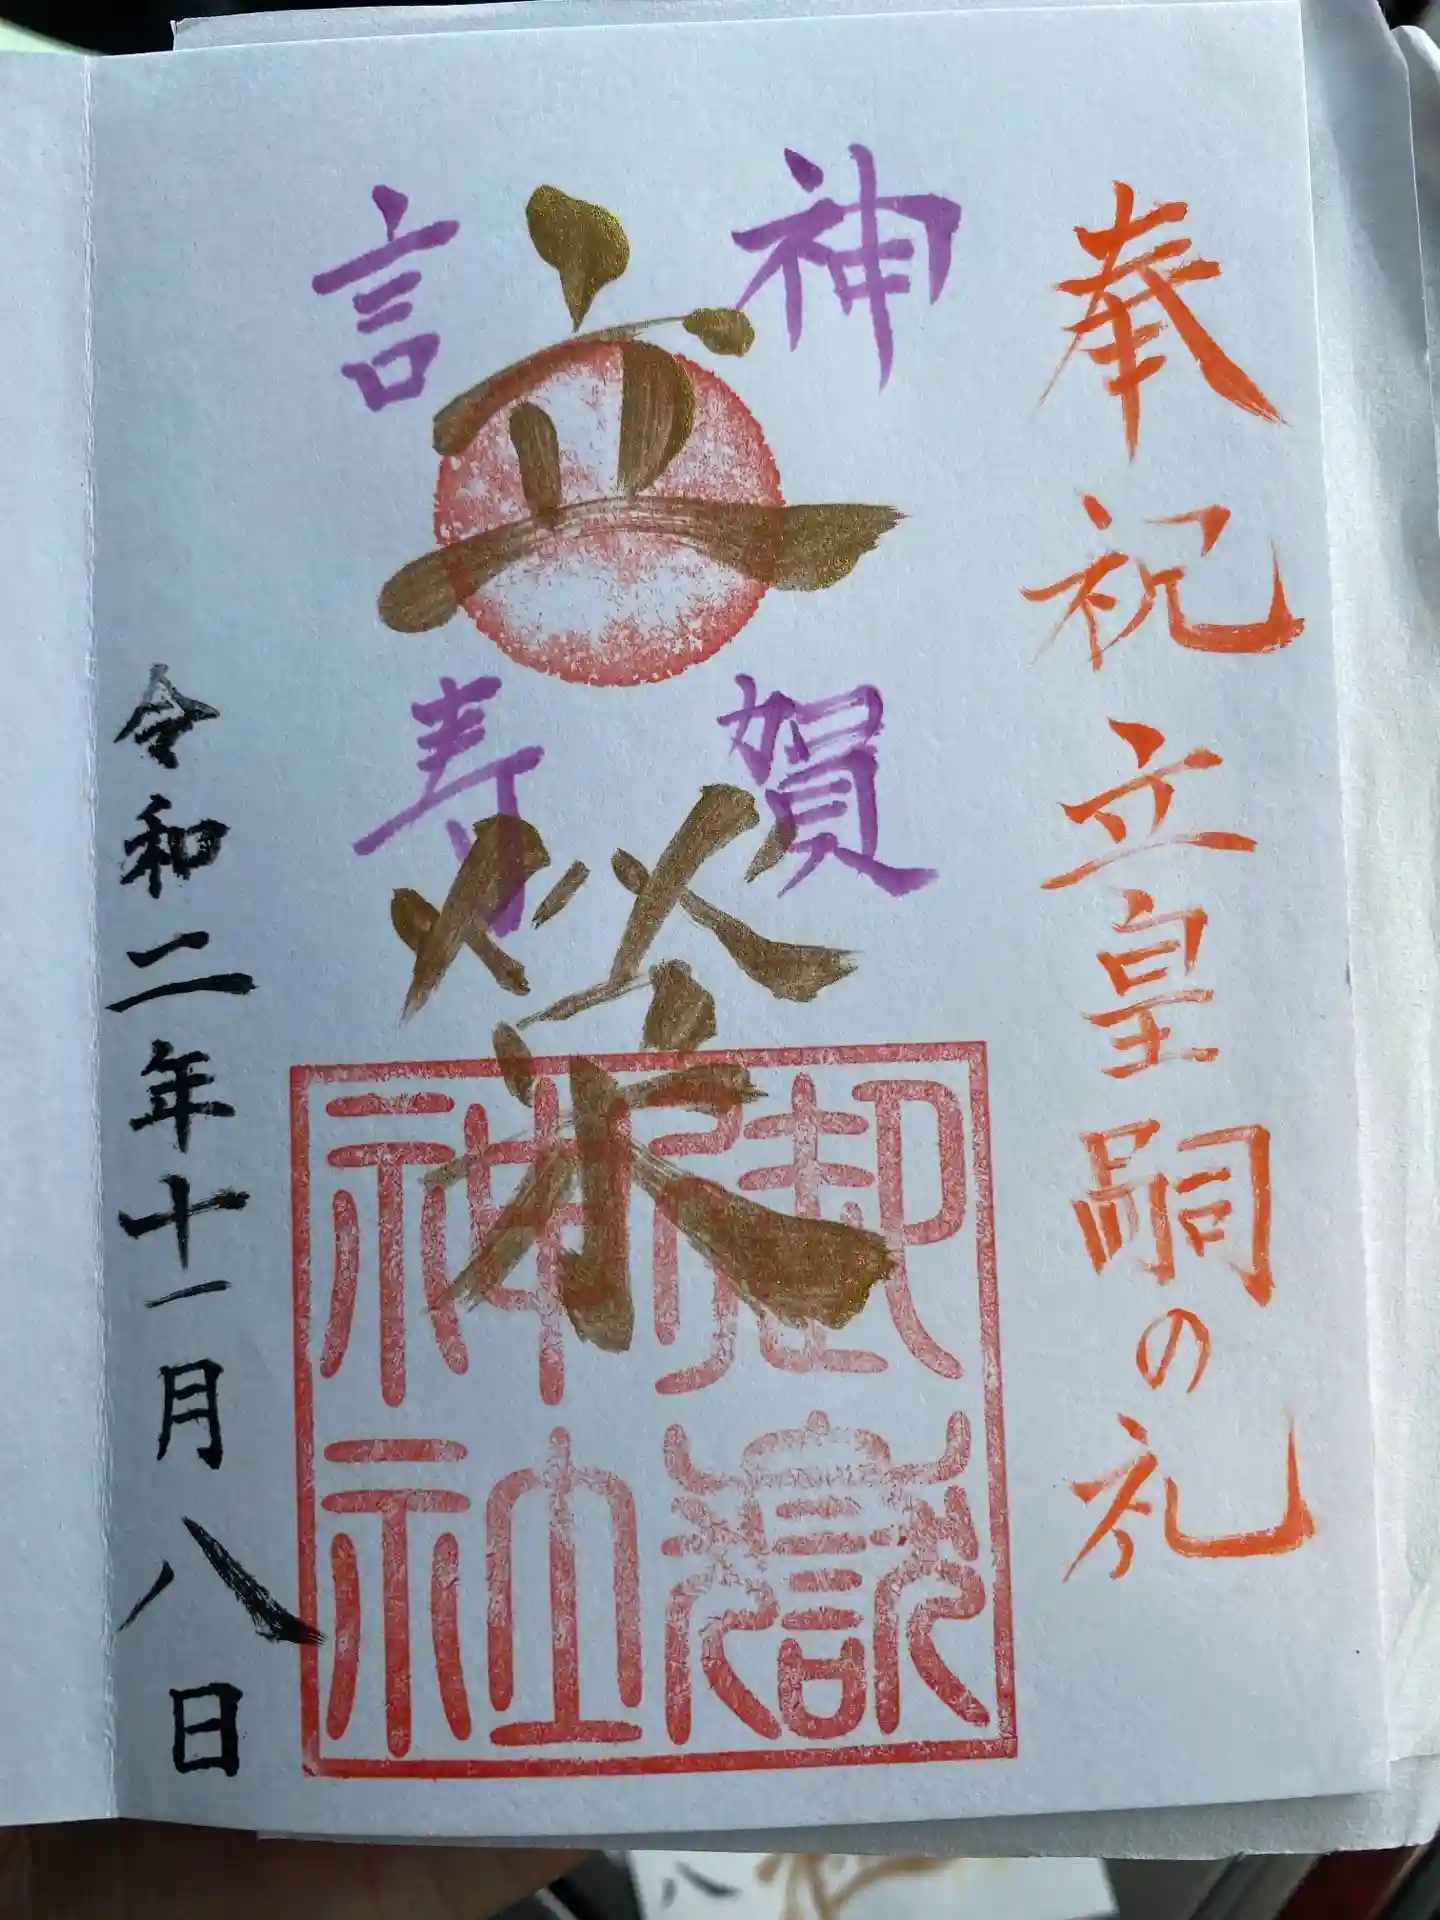 奉祝立皇嗣の礼
神賀
立榮
言寿
御嶽
神社
令和二年十一月八日